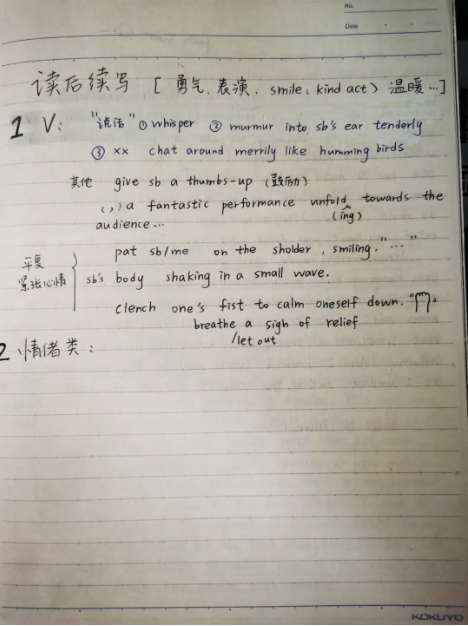 No.
Date
读后续写 [勇气、表演、smile、kind act〉温暖…]
1 V: "说话" ① whisper ② murmur into sb's ear tenderly
③ xx chat around merrily like humming birds
其他 give sb a thumbs-up (鼓励)
(,,) a fantastic performance unfold towards the
(ing)
audience...
平复
紧张心情
pat sb/me on the sholder, smiling. "……"
sb's body shaking in a small wave.
clench one's fist to calm oneself down.
breathe a sigh of relief
/let out
2 情绪类:
KOKUYO